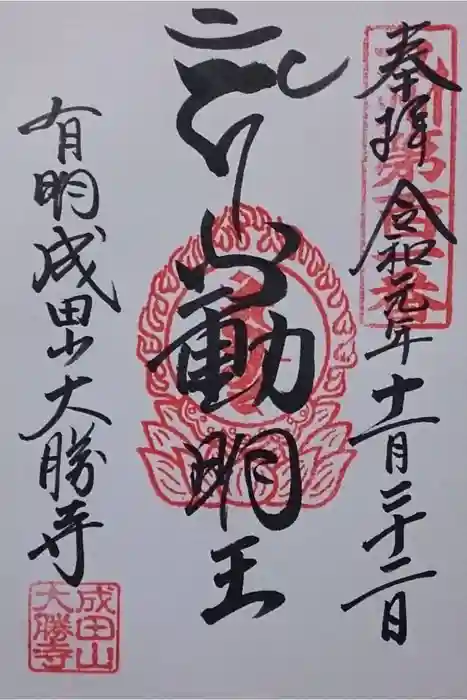 九州第百
奉拝 令和元年十一月二十二日
不動明王
有明成田山大勝寺
成田山
大勝寺